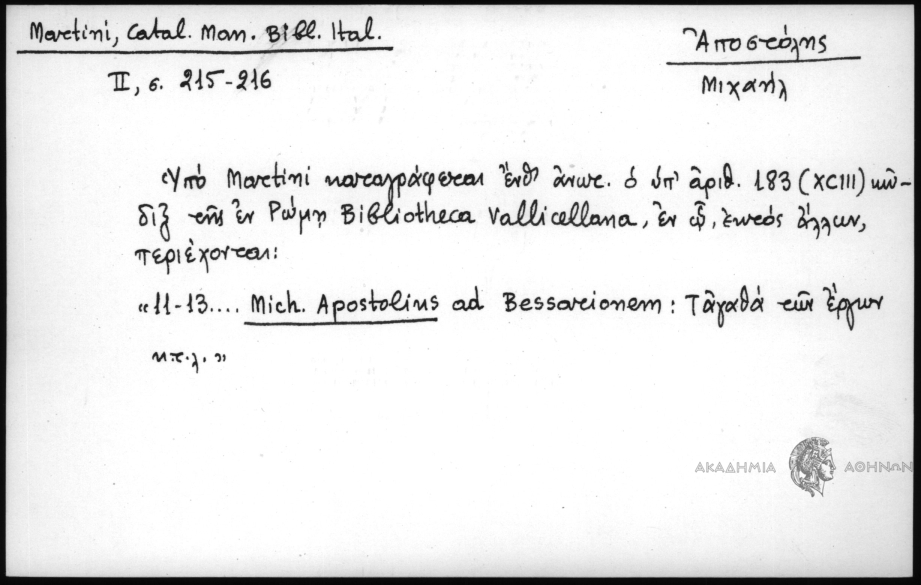 Martini, Catal. Man. Bibl. Ital.
II, σ. 215-216
Ἀποστόλης
Μιχαήλ
Ὑπό Martini καταγράφεται ἔνθ' ἀνωτ. ὁ ὑπ' ἀριθ. 183 (XCIII) κῶ-
διξ τῆς ἐν Ρώμῃ Bibliotheca Vallicellana, ἐν ᾧ, ἐκτός ἄλλων,
περιέχονται:
«11-13.... Mich. Apostolius ad Bessarionem: Τἀγαθά τῶν ἔργων
κ.τ.λ.»
ΑΚΑΔΗΜΙΑ ΑΘΗΝΩΝ